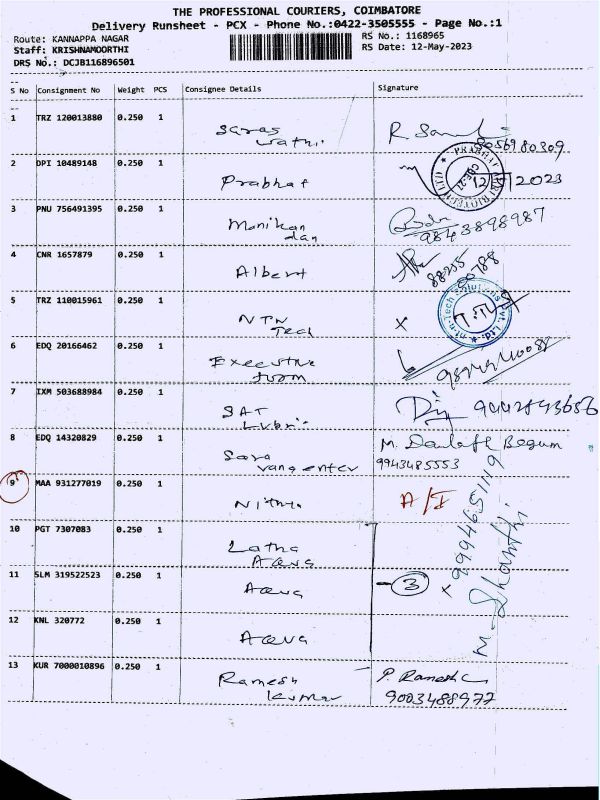 THE PROFESSIONAL COURIERS, COIMBATORE
Delivery Runsheet - PCX - Phone No.:0422-3505555 - Page No.:1
Route: KANNAPPA NAGAR
RS No.: 1168965
Staff: KRISHNAMOORTHI
RS Date: 12-May-2023
DRS No.: DCJB116896501
S No Consignment No Weight PCS Consignee Details Signature
1 TRZ 120013880 0.250 1 Saras
wathi
8056980309
2 DPI 10489148 0.250 1 Prabhat
12 2023
3 PNU 756491395 0.250 1 Manikan
dan
9843898987
4 CNR 1657879 0.250 1 Albert
88255
80788
5 TRZ 110015961 0.250 1 NTN
Tech X
6 EDQ 20166462 0.250 1 Executive
7 IXM 503688984 0.250 1 SAT
8 EDQ 14320829 0.250 1 Sara M. Daulath Begum
9943485553
9 MAA 931277019 0.250 1 Nithi A/I
10 PGT 7307083 0.250 1 Latha
Aqua
11 SLM 319522523 0.250 1 Aqua - 3 x
12 KNL 320772 0.250 1 Aqua
M. Shanthi
9994651119
13 KUR 7000010896 0.250 1 Ramesh P. Ramesh
kumar 9003488977